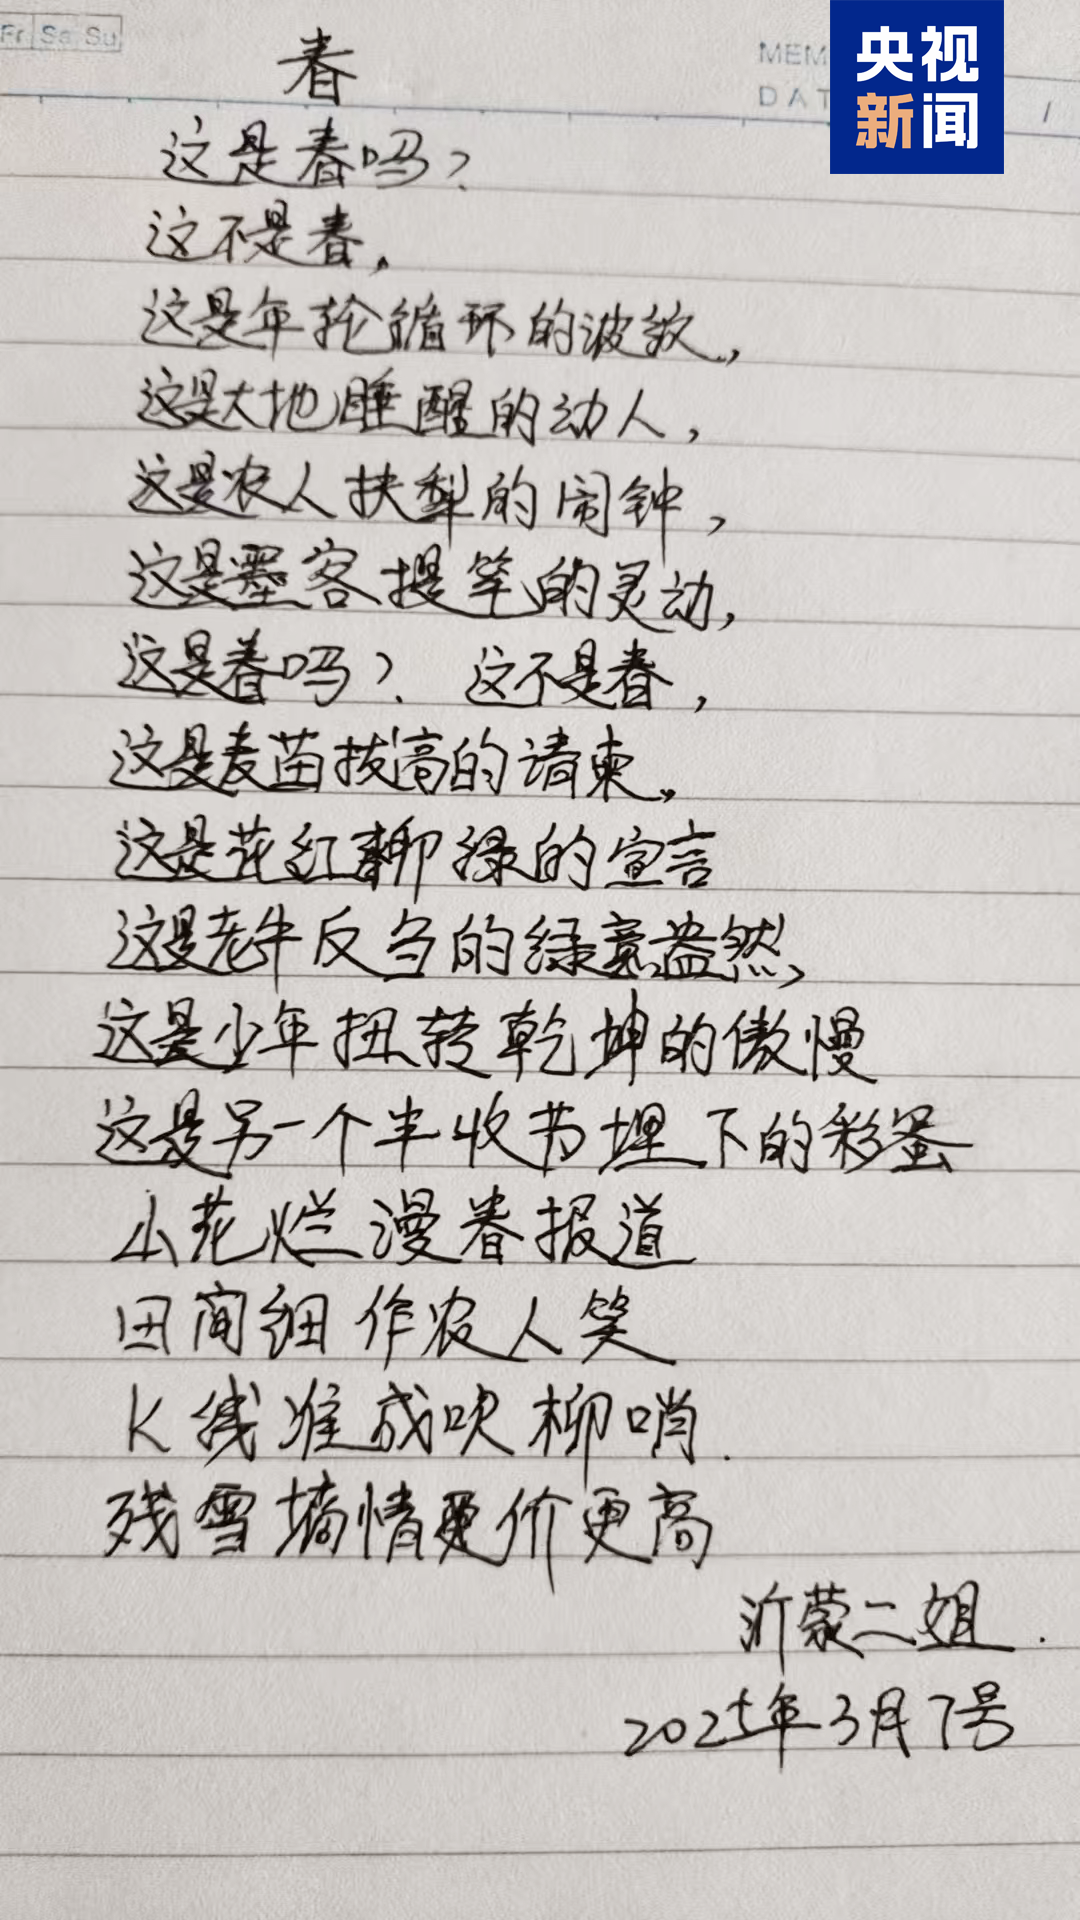 Fr Sa Su
MEM
DAT
央视
新闻
春
这是春吗?
这不是春,
这是年轮循环的波纹,
这是大地睡醒的动人,
这是农人扶犁的闹钟,
这是墨客提笔的灵动,
这是春吗? 这不是春,
这是麦苗拔高的请柬,
这是花红柳绿的宣言
这是老牛反刍的绿意盎然,
这是少年扭转乾坤的傲慢
这是另一个丰收节埋下的彩蛋
小花烂漫春报道
田间细作农人笑
K线堆成吹柳哨.
残雪墒情更价更高
沂蒙二姐.
2025年3月7号